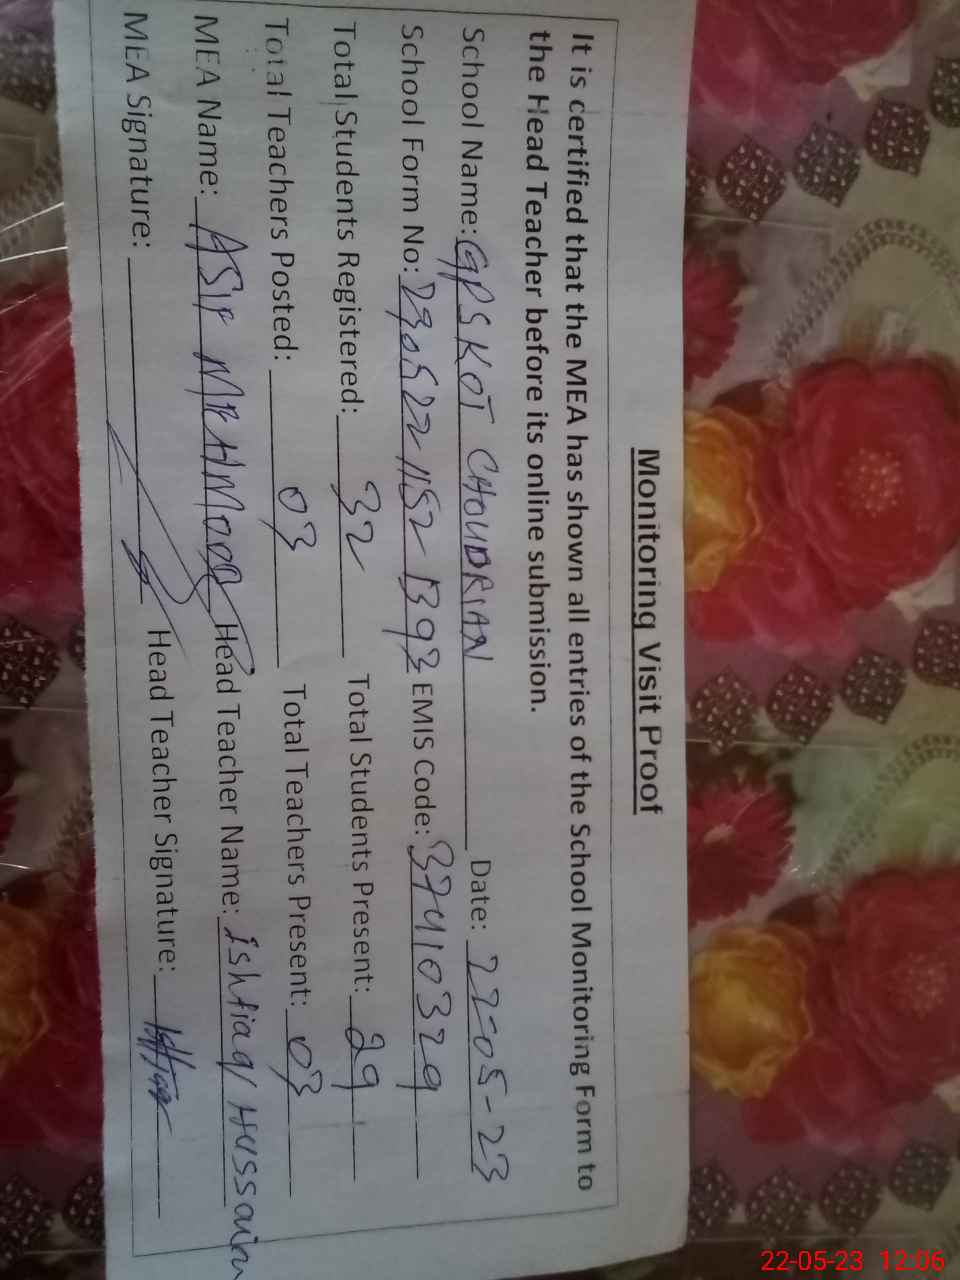 Monitoring Visit Proof
It is certified that the MEA has shown all entries of the School Monitoring Form to
the Head Teacher before its online submission.
School Name: GPS KOT CHOUDRIAN Date: 22-05-23
School Form No: 230522 1152 1393 EMIS Code: 37410329
Total Students Registered: 32 Total Students Present: 29
Total Teachers Posted: 03 Total Teachers Present: 03
MEA Name: ASIF MEHMOOD Head Teacher Name: ishtiaq Hussain
MEA Signature: Head Teacher Signature:
22-05-23 12:06